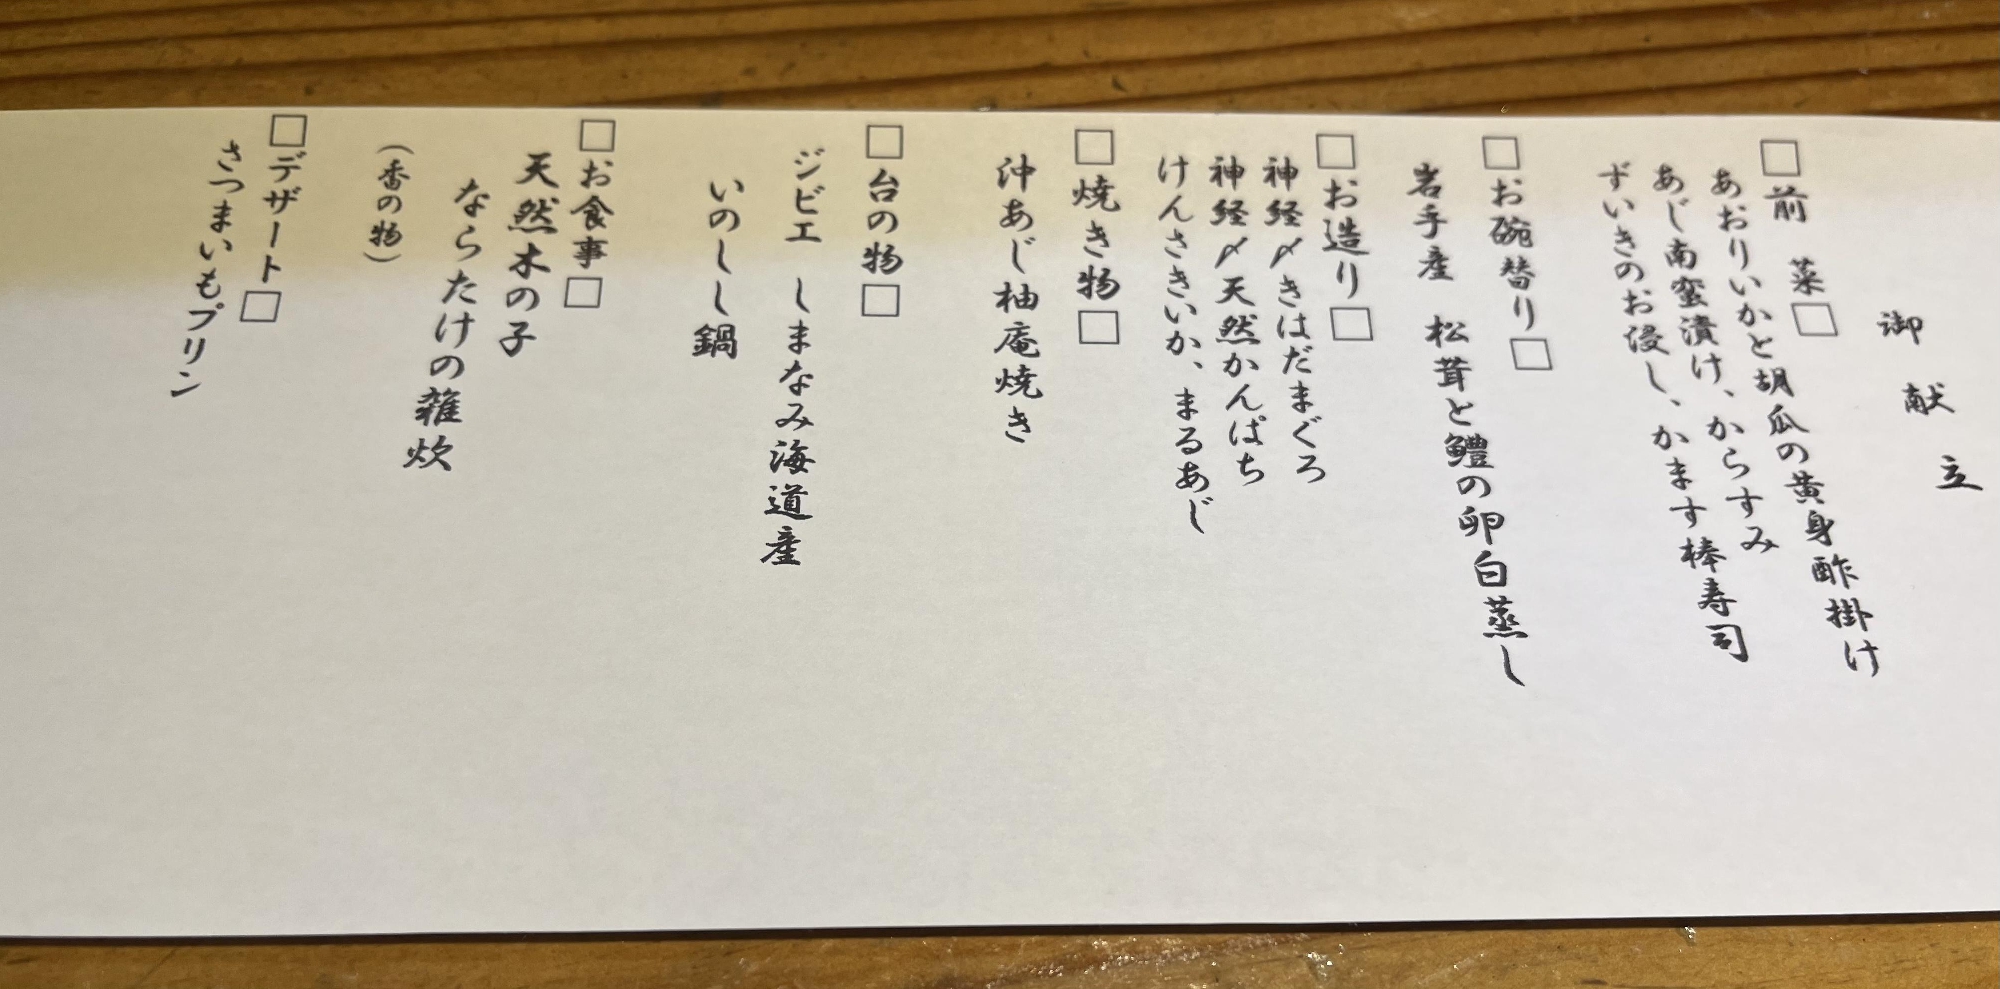 御献立
□前菜□
あおりいかと胡瓜の黄身酢掛け
あじ南蛮漬け、からすみ
ずいきのお浸し、かます棒寿司
□お碗替り□
岩手産 松茸と鱧の卵白蒸し
□お造り□
神経〆きはだまぐろ
神経〆天然かんぱち
けんさきいか、まるあじ
□焼き物□
沖あじ柚庵焼き
□台の物□
ジビエ しまなみ海道産
いのしし鍋
□お食事□
天然木の子
ならたけの雑炊
(香の物)
□デザート□
さつまいもプリン